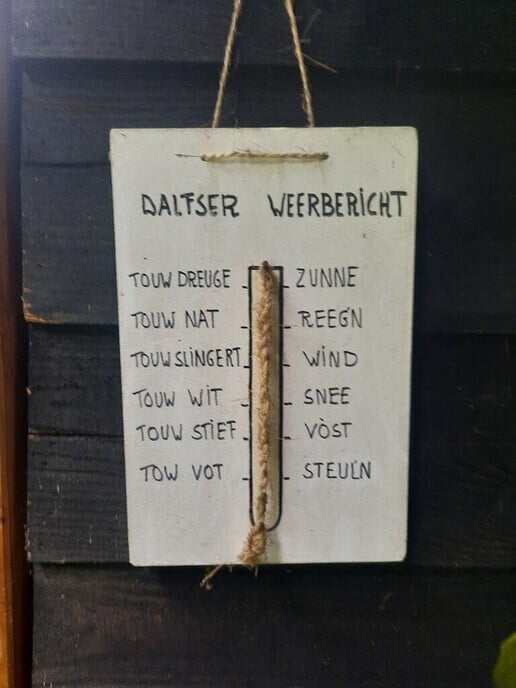 DALFSER WEERBERICHT
TOUW DREUGE - - ZUNNE
TOUW NAT - - REEG'N
TOUW SLINGERT - - WIND
TOUW WIT - - SNEE
TOUW STIEF - - VÒST
TOW VOT - - STEUL'N